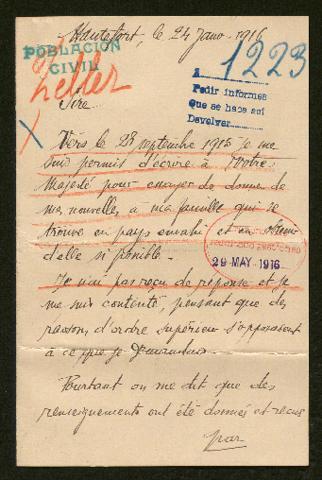 Hautefort, le 24 Janv. 1916
POBLACION
CIVIL
Zeller
1223
A
Pedir informes
Que se hace así
Devolver
Sire
X
Vers le 28 septembre 1915 je me
suis permis d'écrire à Votre
Majesté pour essayer de donner de
mes nouvelles à ma famille qui se
trouve en pays envahi et en
d'elle si possible.
29 MAY 1916
Je n'ai pas reçu de réponse et je
me suis contenté, pensant que des
raisons d'ordre supérieur s'opposaient
à ce que je demandais.
Pourtant on me dit que des
renseignements ont été donnés et reçus
par